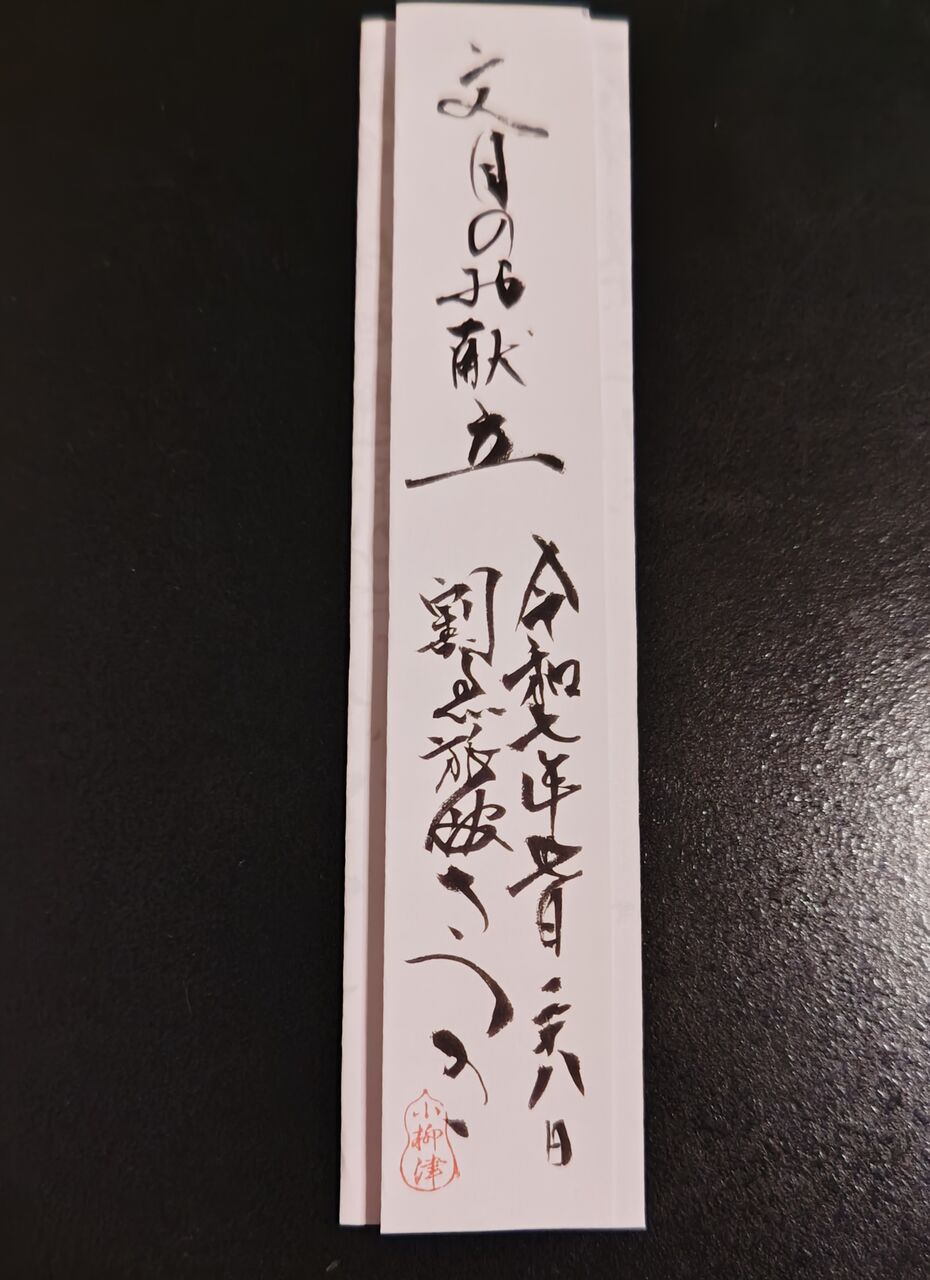 文月のお献立
令和七年七月二十八日
割烹旅館
小柳津